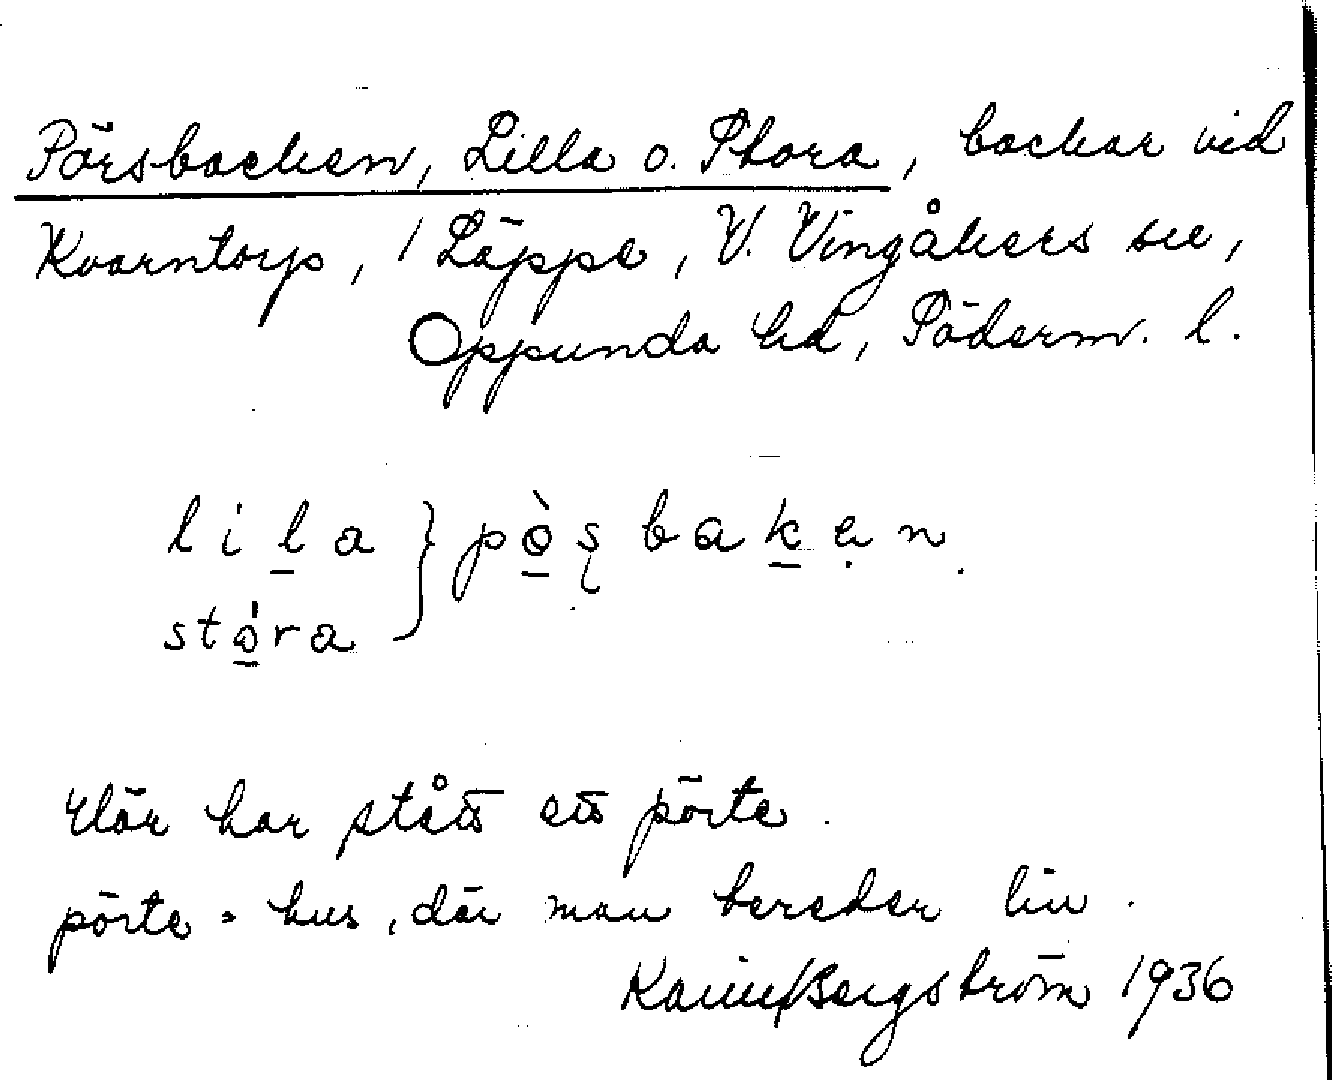 Pörsbacken, Lilla o. Stora, backar vid
Kvarntorp, 1 Läppe, V. Vingåkers sn,
Oppunda hd, Söderm. l.
lila } pò̱ʂbaḵẹn.
stó̱ra
Här har stått ett pörte.
pörte = hus, där man bereder lin.
Karin Bergström 1936